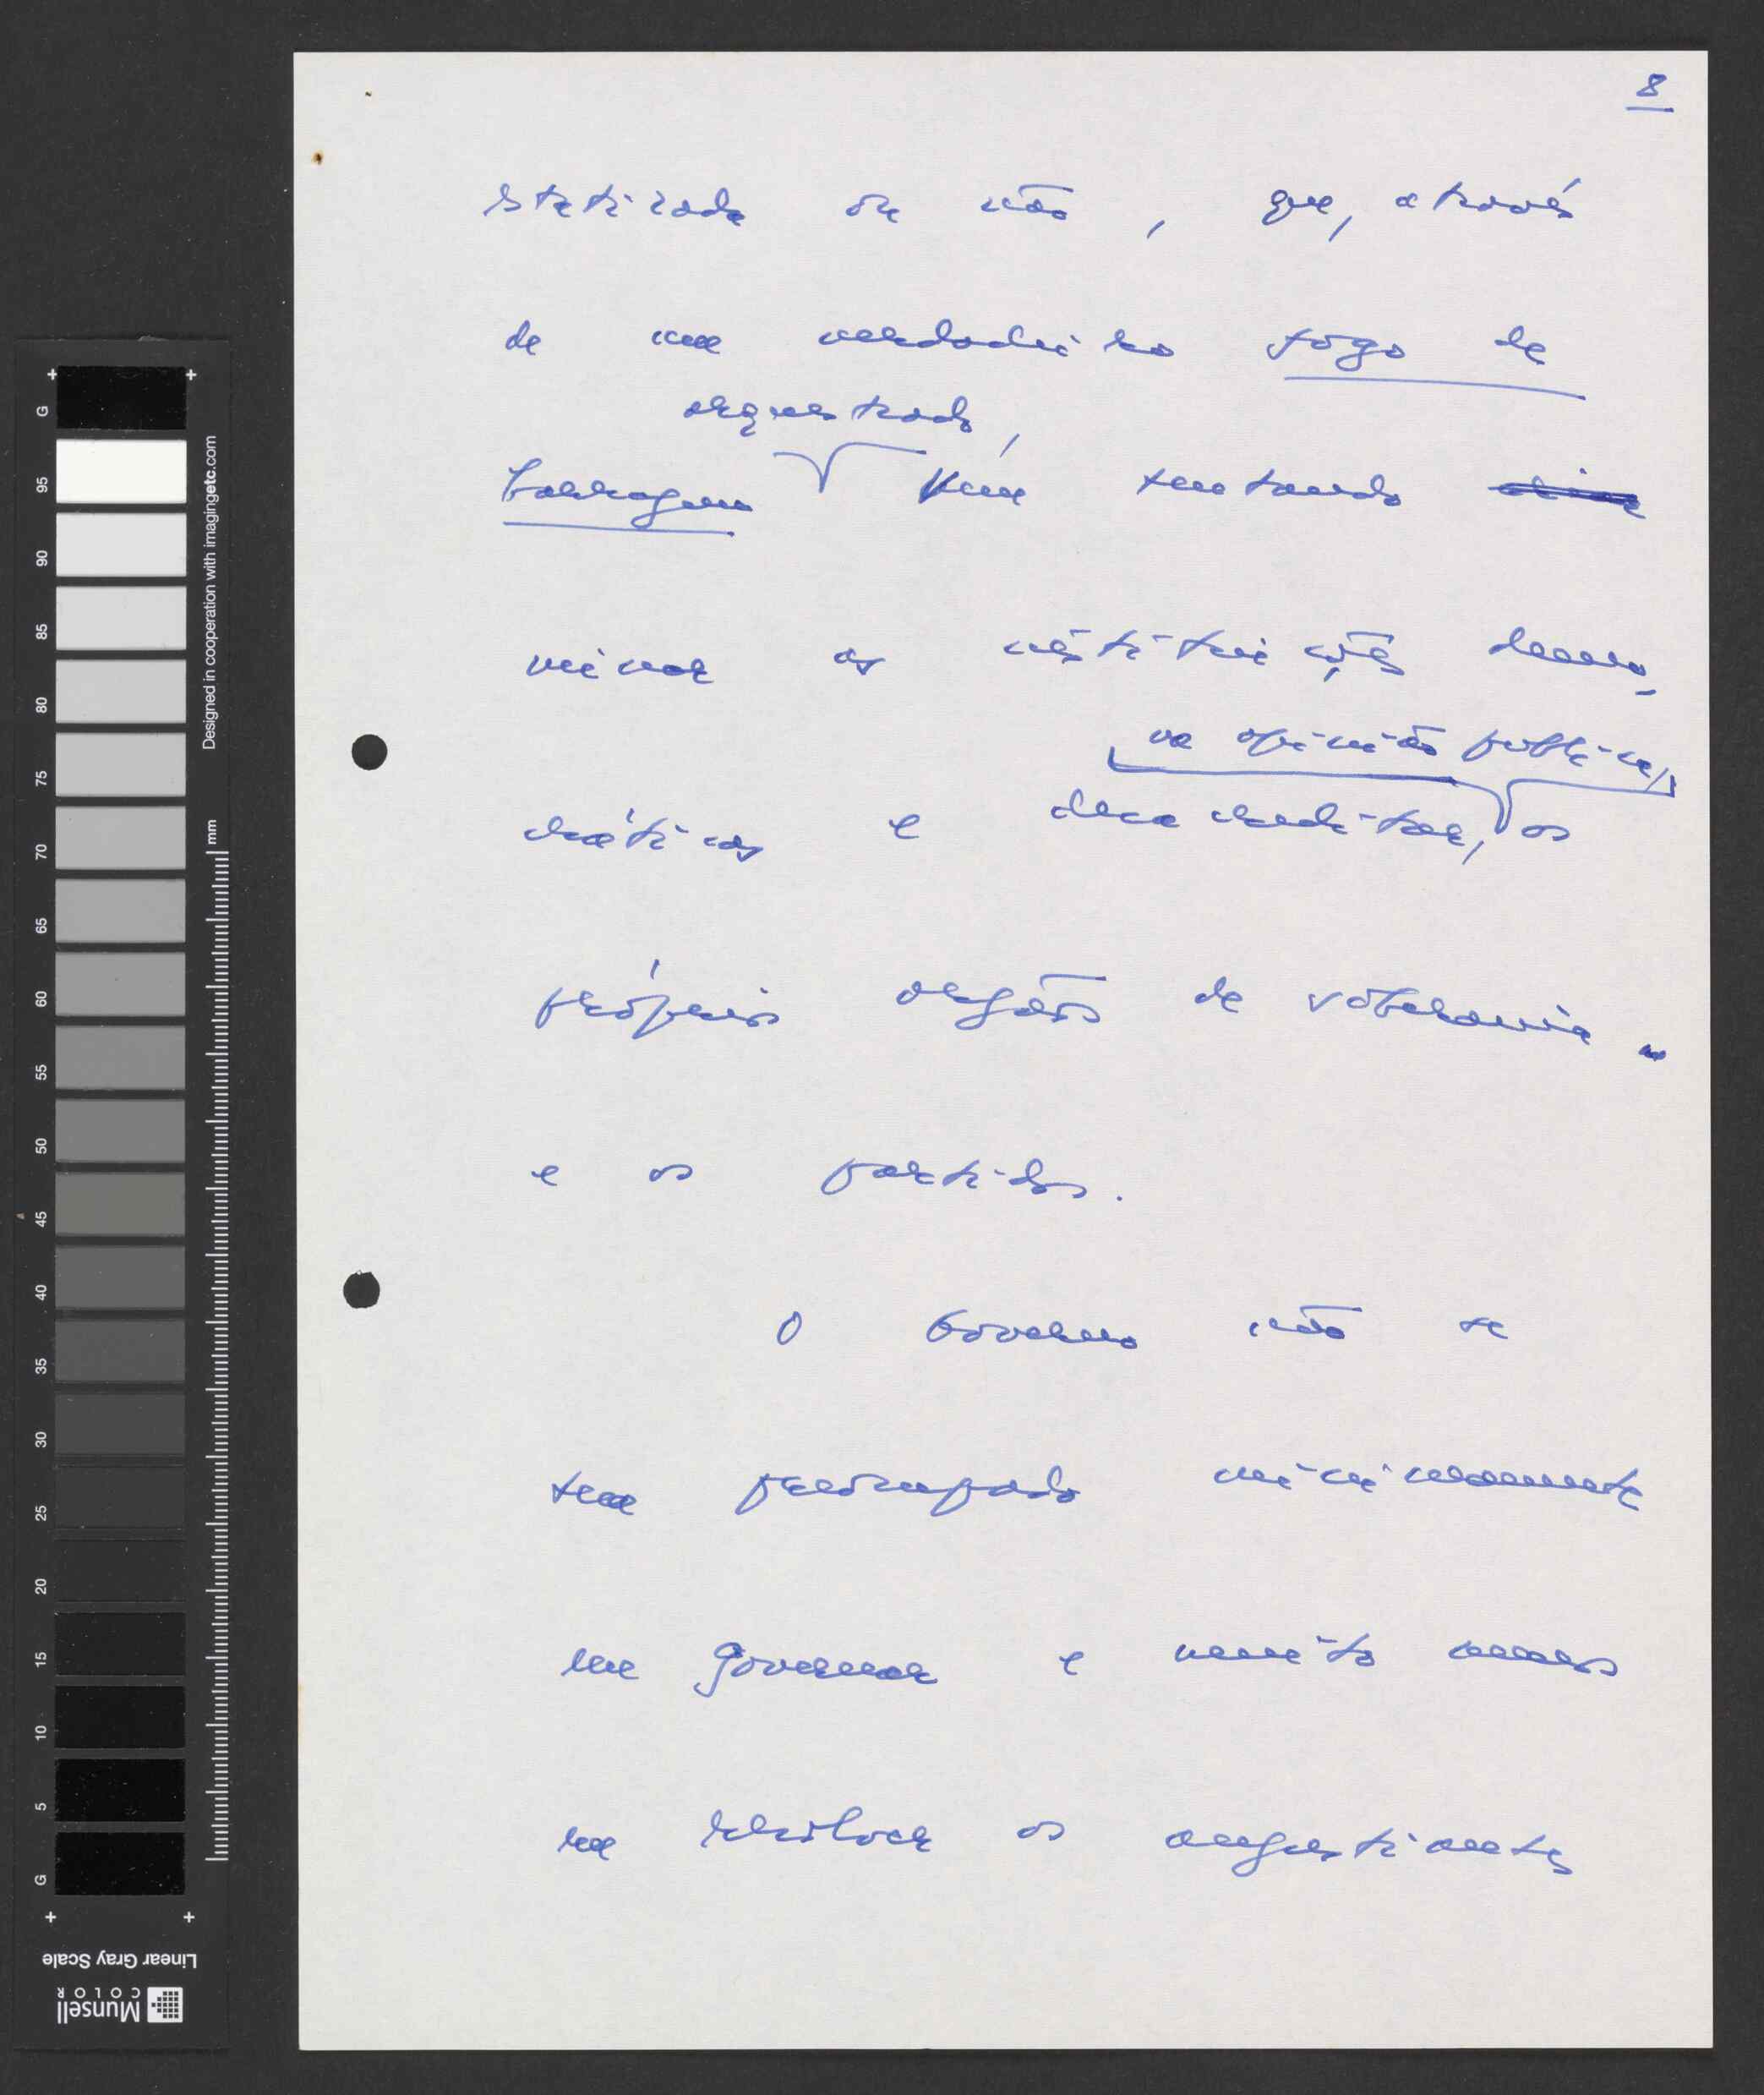 8
statizada ou não, que, através
de um verdadeiro fogo de
orquestrado,
barragem vem tentando
minar as instituições democ-
na opinião pública,
cráticas e desacreditar, os
próprios orgãos de soberania
e os partidos.
O Governo não se
tem preocupado minimamente
em governar e muito menos
em resolver os angustiantes
G
95
90
85
80
75
70
65
60
55
50
45
40
35
30
25
20
15
10
5
G
mm
Designed in cooperation with imagingetc.com
Linear Gray Scale
Munsell
COLOR